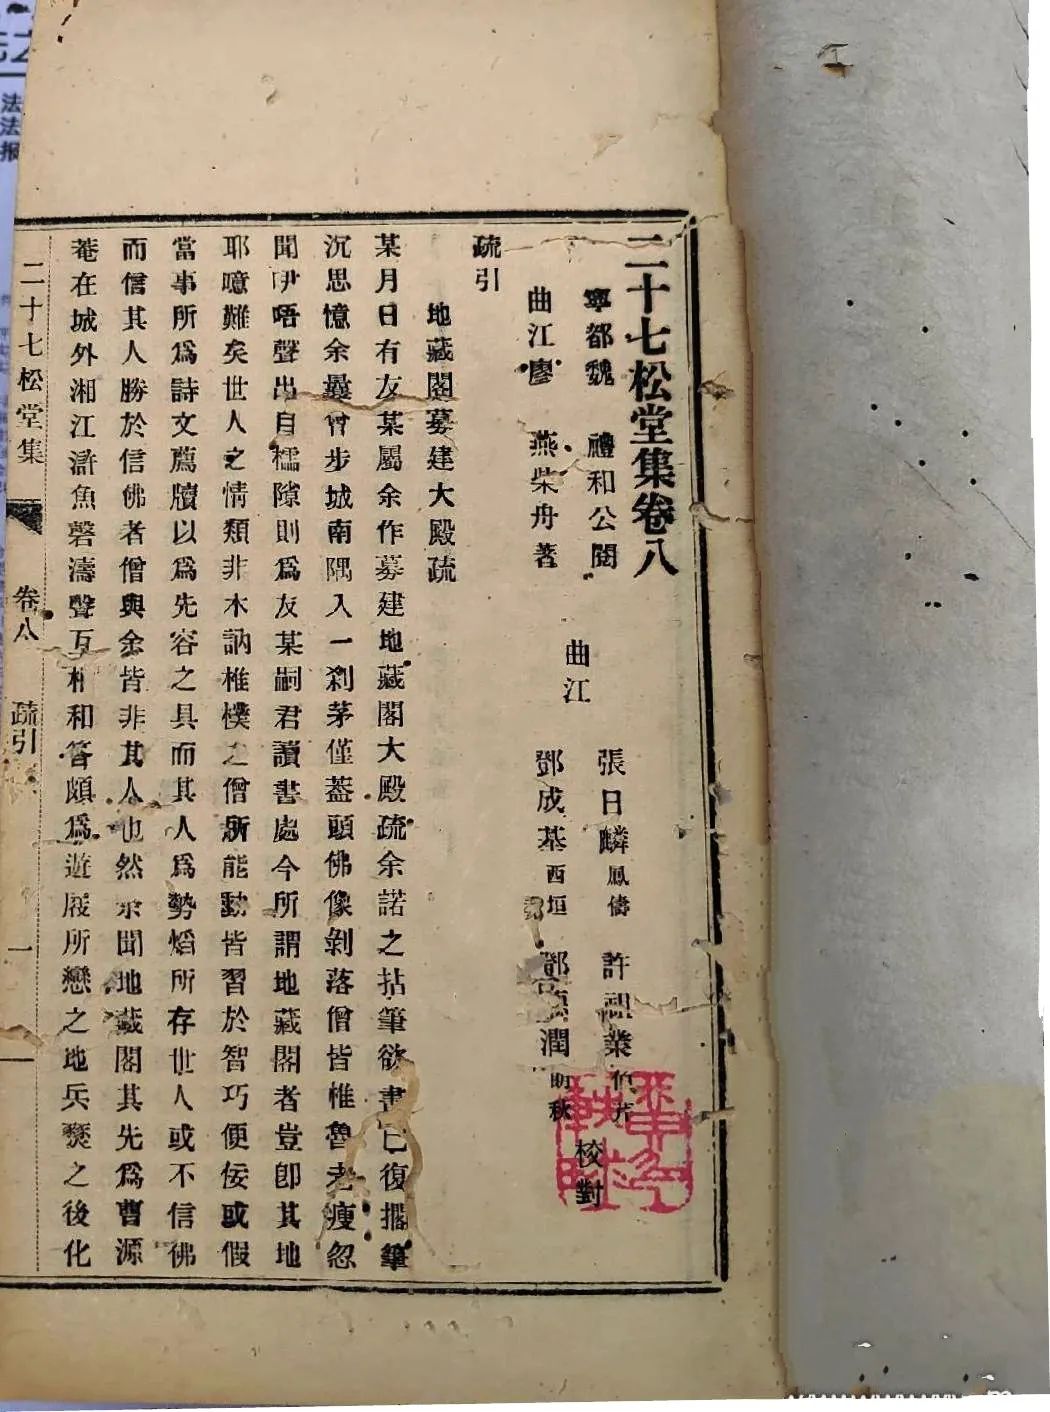 二十七松堂集卷八
寧都魏 禮和公閱
曲江廖 燕柴舟著
曲江
張日麟鳳儔 許祖業
鄧成基西垣 鄧 潤
校對
疏引
地藏閣募建大殿疏
某月日有友某屬余作募建地藏閣大殿疏余諾之拈筆欲書已復擱筆
沉思憶余曩曾步城南隅入一刹茅僅蓋頭佛像剝落僧皆椎魯老瘦忽
聞咿唔聲出自櫺隙則為友某嗣君讀書處今所謂地藏閣者豈卽其地
耶噫難矣世人之情類非木訥椎樸之僧所能動皆習於智巧便佞或假
當事所為詩文薦牘以為先容之具而其人為勢熖所存世人或不信佛
而信其人勝於信佛者僧與余皆非其人也然余聞地藏閣其先為曹源
菴在城外湘江滸魚磬濤聲互相和答頗為遊屐所戀之地兵燹之後化
二十七松堂集
卷八
疏引
一
法
法
报